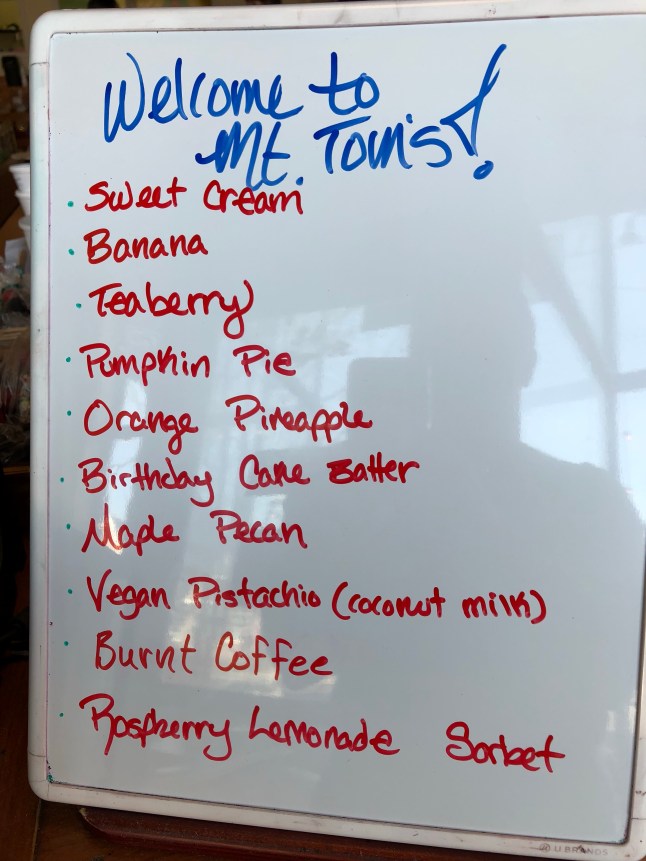 Welcome to
Mt. Tom's!
· Sweet Cream
· Banana
· Teaberry
· Pumpkin Pie
· Orange Pineapple
· Birthday Cake Batter
· Maple Pecan
· Vegan Pistachio (coconut milk)
· Burnt Coffee
· Raspberry Lemonade Sorbet
U BRANDS